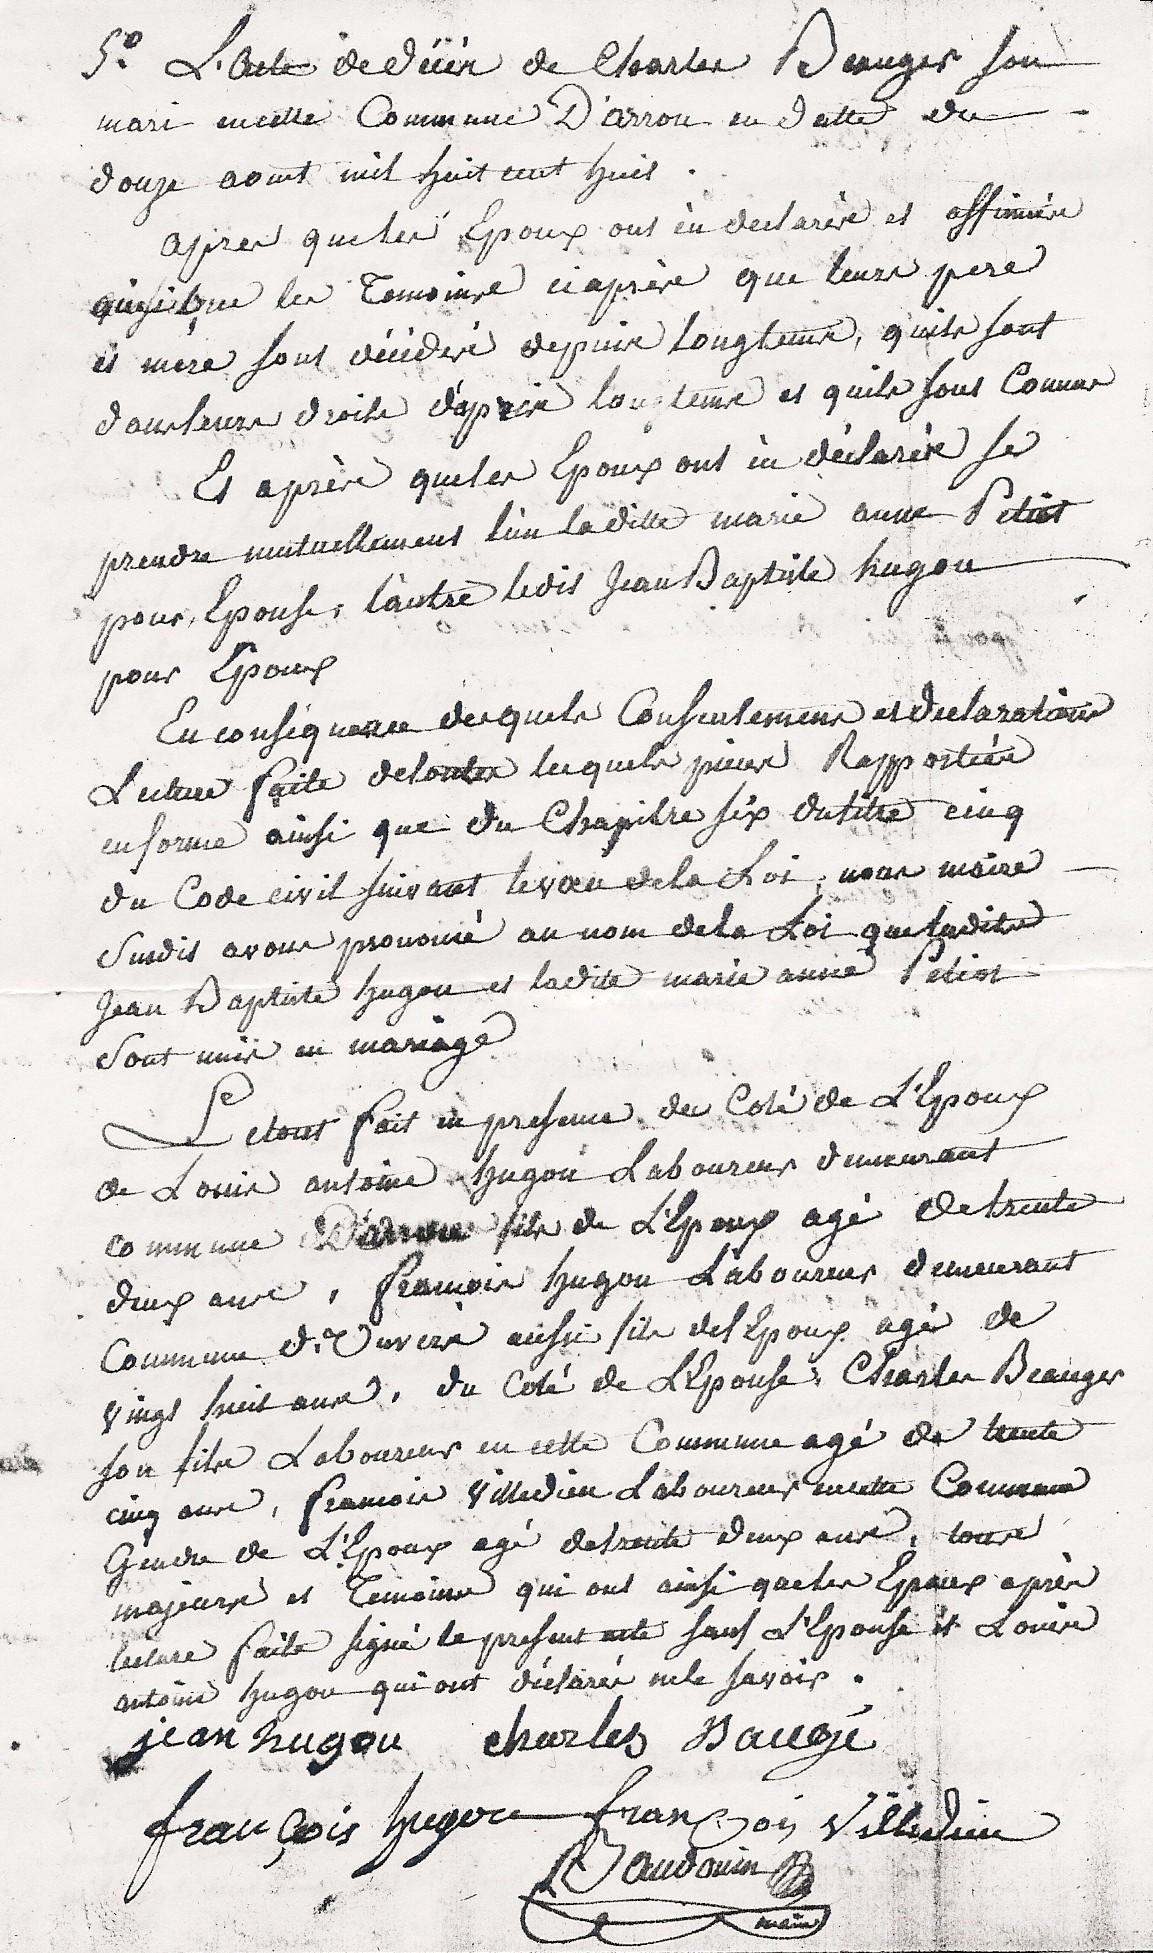 5.° L'acte de décés de Charles Beauger son
mari encette Commune D'arrou en datte du
douze aout mil huit cent huit.
apres queles Epoux ont èu declarèr et affirmèr
ainsique les Temoins ciaprès que leurs pere
et mère sont décédés depuis longtems, quils sont
dansleurs droits dépuis longtems et quils sont Connus
Et après queles Epoux ont èu déclarèr se
prendre mutuellement l'un laditte marie anne Petiot
pour, Epouse, l'autre ledit Jean Baptiste hugou
pour Epoux
En conséquence desquels Consentemens et declarations
Lecture faite detoutes lesquels pieces Rapportées
enforme ainsi que du Chapitre six dutitre cinq
du Code civil suivant levœu dela Loi, nous maire
susdit avons prononcé au nom dela Loi queledit
Jean Baptiste hugou et ladite marie anne Petiot
sont unis en mariage
Le tout fait en presence du Coté de L'Epoux
de Louis antoine hugou Laboureur demeurant
commune D'arrou fils de L'Epoux agé detrente
deux ans, francois hugou Laboureur demeurant
Commune d' aussi fils del'Epoux agé de
vingt huit ans, du Coté de L'Epouse, Charles Beauger
son fils Laboureur en cette Commune agé de trente
cinq ans, francois Villedieu Laboureur encette Commune
Gendre de L'Epoux agé detrente deux ans, tous
majeurs et Temoins qui ont ainsi queles Epoux après
lecture faite signé le present acte sauf L'Epouse et Louis
antoine hugou qui ont déclaré nele savoir.
jean hugou charles Baugé
françois hugou françois Villedieu
Baudouin
maire